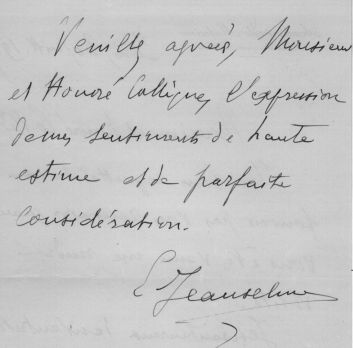 Veuillez agréer, Monsieur
et Honoré Collègue, l'expression
de mes sentiments de haute
estime et de parfaite
considération.
E. Jeanselme